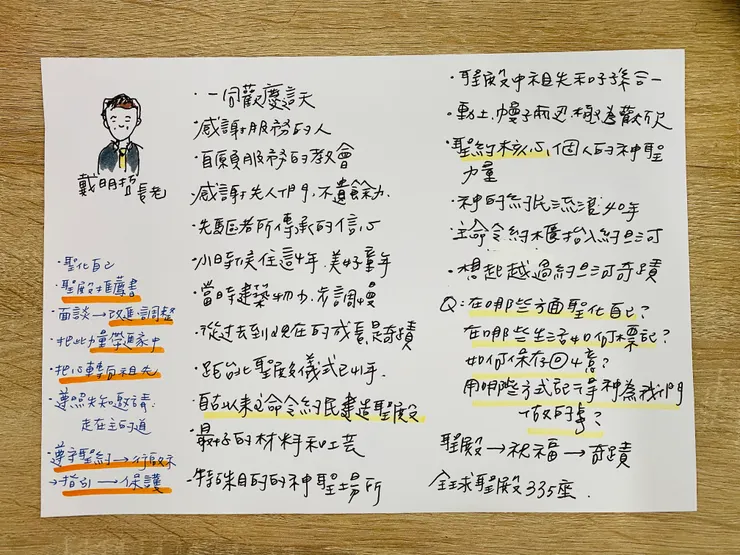 戴明哲
長老
·聖化自己
·聖殿推薦書
面談→改進調整
·把此力量帶進家中
·把心轉向祖先
·遵照先知邀請:
走在主的道
·遵守聖約→行啟示
→指引→保護
·一同觀慶這天
·感謝服務的人
·自願服務的教會
·感謝先人們,不遺餘力
·先驅者所傳承的信心
·小時候住這4年,美好童年
·當時建築物少,步調慢
·從過去到現在的成長是奇蹟
·距台北聖殿儀式已41年.
·自古以來主命令約民建造聖殿
·最好的材料和工藝
·特殊目的的神聖場所
·聖殿中祖先和子孫合一
·動土,幔子兩邊極為歡欣
·聖約核心,個人的神聖
力量
·神的約民流浪40年
·主命令約櫃抬入約旦河
·想起越過約旦河奇蹟
Q:在哪些方面聖化自己?
在哪些生活如何標記?
如何保存回憶?
用哪些方式記得神為我們
做的事?
聖殿→祝福→奇蹟
全球聖殿335座.